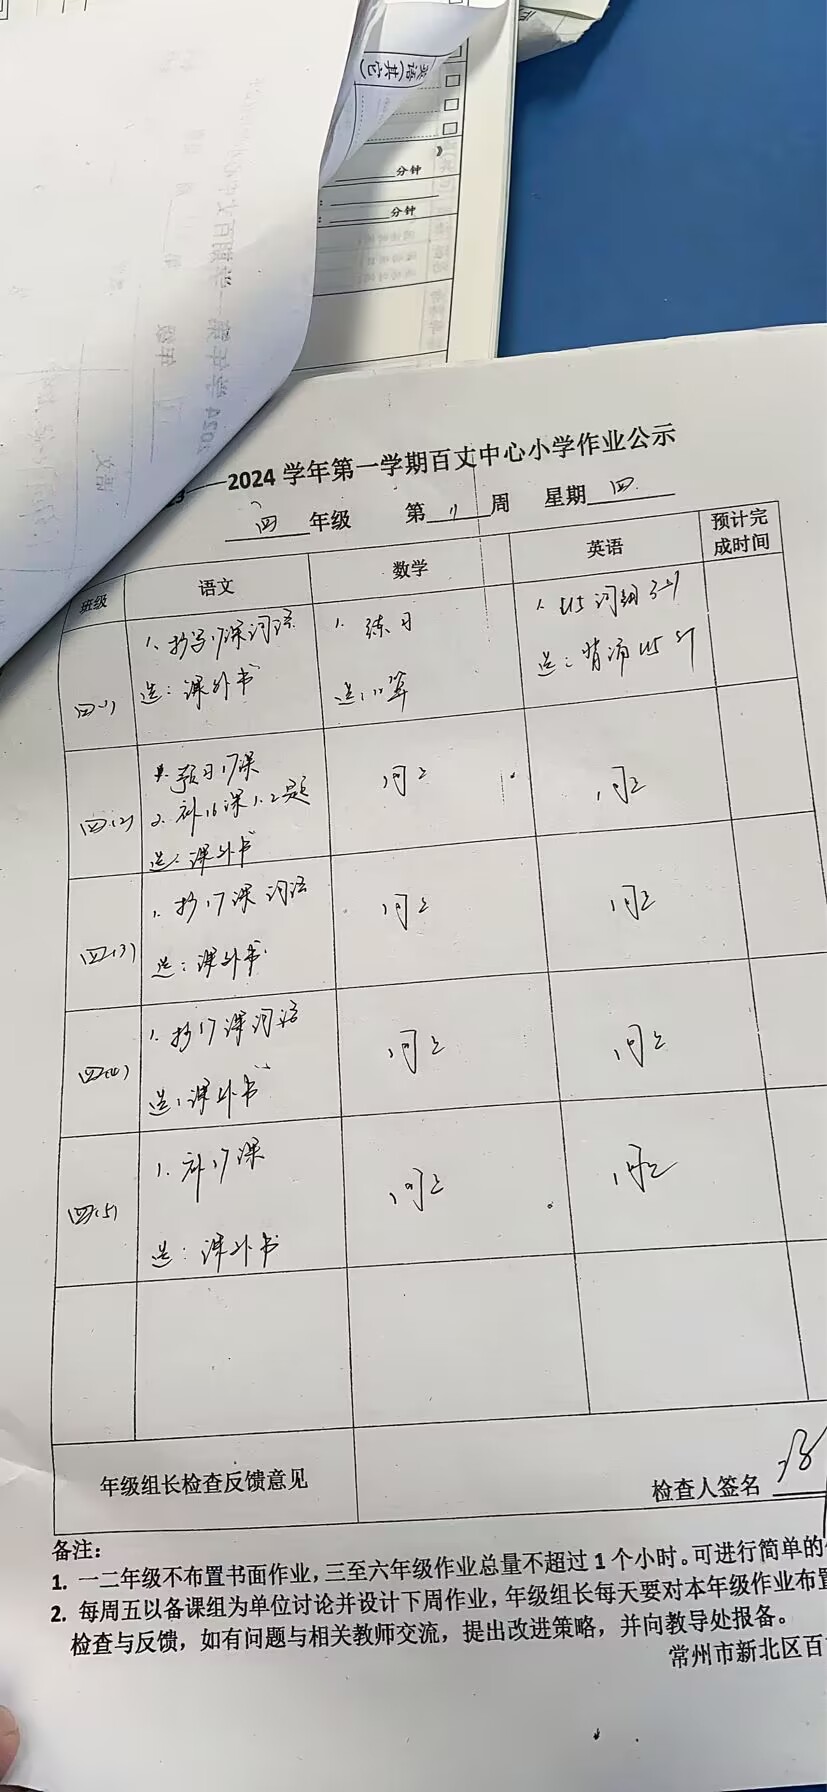 英语（其它）
分钟
分钟
2024 学年第一学期百丈中心小学作业公示
四 年级 第 11 周 星期 四
班级 语文 数学 英语 预计完成时间
四(1)
1. 抄写17课词语
选：课外书
1. 练习
选：口算
1. U5 词组 3+1
选：背诵 U5
四(2)
1. 预习17课
2. 补16课1.2题
选：课外书
同上
同上
四(3)
1. 抄17课词语
选：课外书
同上
同上
四(4)
1. 抄17课词语
选：课外书
同上
同上
四(5)
1. 补17课
选：课外书
同上
同上
年级组长检查反馈意见
检查人签名
备注：
1. 一二年级不布置书面作业，三至六年级作业总量不超过 1 个小时。可进行简单的
2. 每周五以备课组为单位讨论并设计下周作业，年级组长每天要对本年级作业布置
检查与反馈，如有问题与相关教师交流，提出改进策略，并向教导处报备。
常州市新北区百